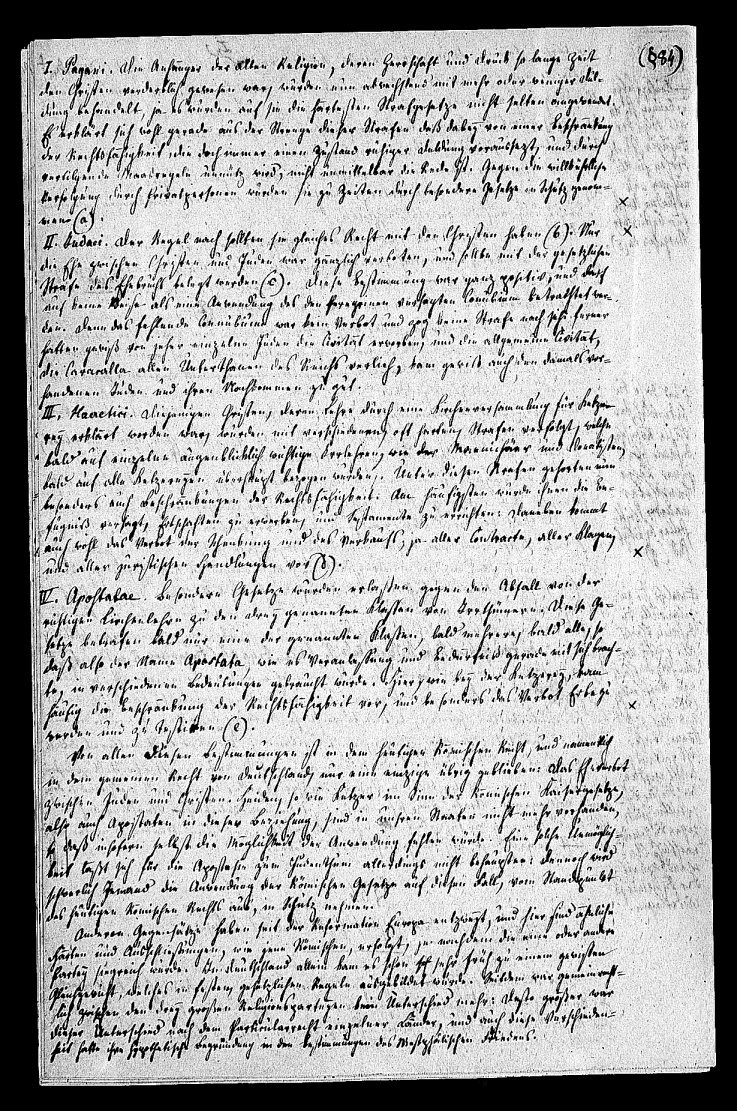 (§84)
I. Pagani. Die Anhänger der alten Religion, deren Herrschaft und Druck so lange Zeit
den Christen verderblich gewesen war, wurden nun abwechselnd mit mehr oder weniger Dul-
dung behandelt, ja es wurden auf sie die härtesten Strafgesetze nicht selten angewendet.
Es erklärt sich wohl gerade aus der Strenge dieser Strafen daß dabey von einer Beschränkung
der Rechtsfähigkeit, die doch immer einen Zustand ruhiger Duldung voraussetzt, und durch
vertilgende Maasregeln unnütz wird, nicht unmittelbar die Rede ist. Gegen die willkührliche
Verfolgung durch Privatpersonen wurden sie zu Zeiten durch besondere Gesetze in Schutz genom-
men (a).
II. Judaei. Der Regel nach sollten sie gleiches Recht mit den Christen haben (b). Nur
die Ehe zwischen Christen und Juden war gänzlich verboten, und sollte mit der gesetzlichen
Strafe des Ehebruchs belegt werden (c). Diese Bestimmung war ganz positiv, und darf
auf keine Weise als eine Anwendung des den Peregrinen versagten Connubium betrachtet wer-
den. Denn das fehlende Connubium war kein Verbot und zog keine Strafe nach sich: ferner
hatten gewiß von jeher einzelne Juden die Civität erworben, und die allgemeine Civität,
die Caracalla allen Unterthanen des Reichs verlieh, kam gewiß auch den damals vor-
handenen Juden und ihren Nachkommen zu gut.
III. Haeretici. Diejenigen Christen, deren Lehre durch eine Kirchenversammlung für Ketze-
rey erklärt worden war, wurden mit verschiedenen, oft harten, Strafen verfolgt, welche
bald auf einzelne augenblicklich wichtige Irrlehren, wie der Manichäer und Donatisten,
bald auf alle Ketzereyen überhaupt bezogen wurden. Unter diesen Strafen gehörten nun
besonders auch Beschränkungen der Rechtsfähigkeit. Am häufigsten wurde ihnen die Be-
fugniß versagt, Erbschaften zu erwerben, und Testamente zu errichten: daneben kommt
auch wohl das Verbot der Schenkung und des Verkaufs, ja aller Contracte, aller Klagen,
und aller juristischen Handlungen vor (d).
IV. Apostatae. Besondere Gesetze wurden erlassen gegen den Abfall von der
richtigen Kirchenlehre zu den drey genannten Klassen von Irrthümern. Diese Ge-
setze betrafen bald nur eine der genannten Klassen, bald mehrere, bald alle, so
daß also der Name Apostata, wie es Veranlassung und Bedürfniß gerade mit sich brach-
te, in verschiedenen Bedeutungen gebraucht wurde. Hier, wie bey der Ketzerey, kam
häufig die Beschränkung der Rechtsfähigkeit vor, und besonders das Verbot Erbe zu
werden und zu testiren (e).
Von allen diesen Bestimmungen ist in dem heutigen Römischen Recht, und namentlich
in dem gemeinen Recht von Deutschland, nur eine einzige übrig geblieben: das Eheverbot
zwischen Juden und Christen. Heiden, so wie Ketzer im Sinn der Römischen Kaisergesetze,
also auch Apostaten in dieser Beziehung, sind in unsren Staaten nicht mehr vorhanden,
so daß insofern selbst die Möglichkeit der Anwendung fehlen würde. Eine solche Unmöglich-
keit läßt sich für die Apostasie zum Judenthum allerdings nicht behaupten: dennoch wird
schwerlich Jemand die Anwendung der Römischen Gesetze auf diesen Fall, vom Standpunkt
des heutigen Römischen Rechts aus, in Schutz nehmen.
Andere Gegensätze haben seit der Reformation Europa entzweyt, und hier sind ähnliche
Härten und Ausschließungen, wie jene Römischen, erfolgt, je nachdem die eine oder andere
Parthey siegreich wurde. In Deutschland allein kam es schon sehr früh zu einem gewissen
Gleichgewicht, welches in festen, gesetzlichen Regeln ausgebildet wurde. Seitdem war gemeinrecht-
lich zwischen den drey großen Religionspartheyen kein Unterschied mehr: desto größer war
dieser Unterschied nach dem Particularrecht einzelner Länder, und auch diese Verschieden-
heit hatte ihre hypothetische Begründung in den Bestimmungen des Westphälischen Friedens.